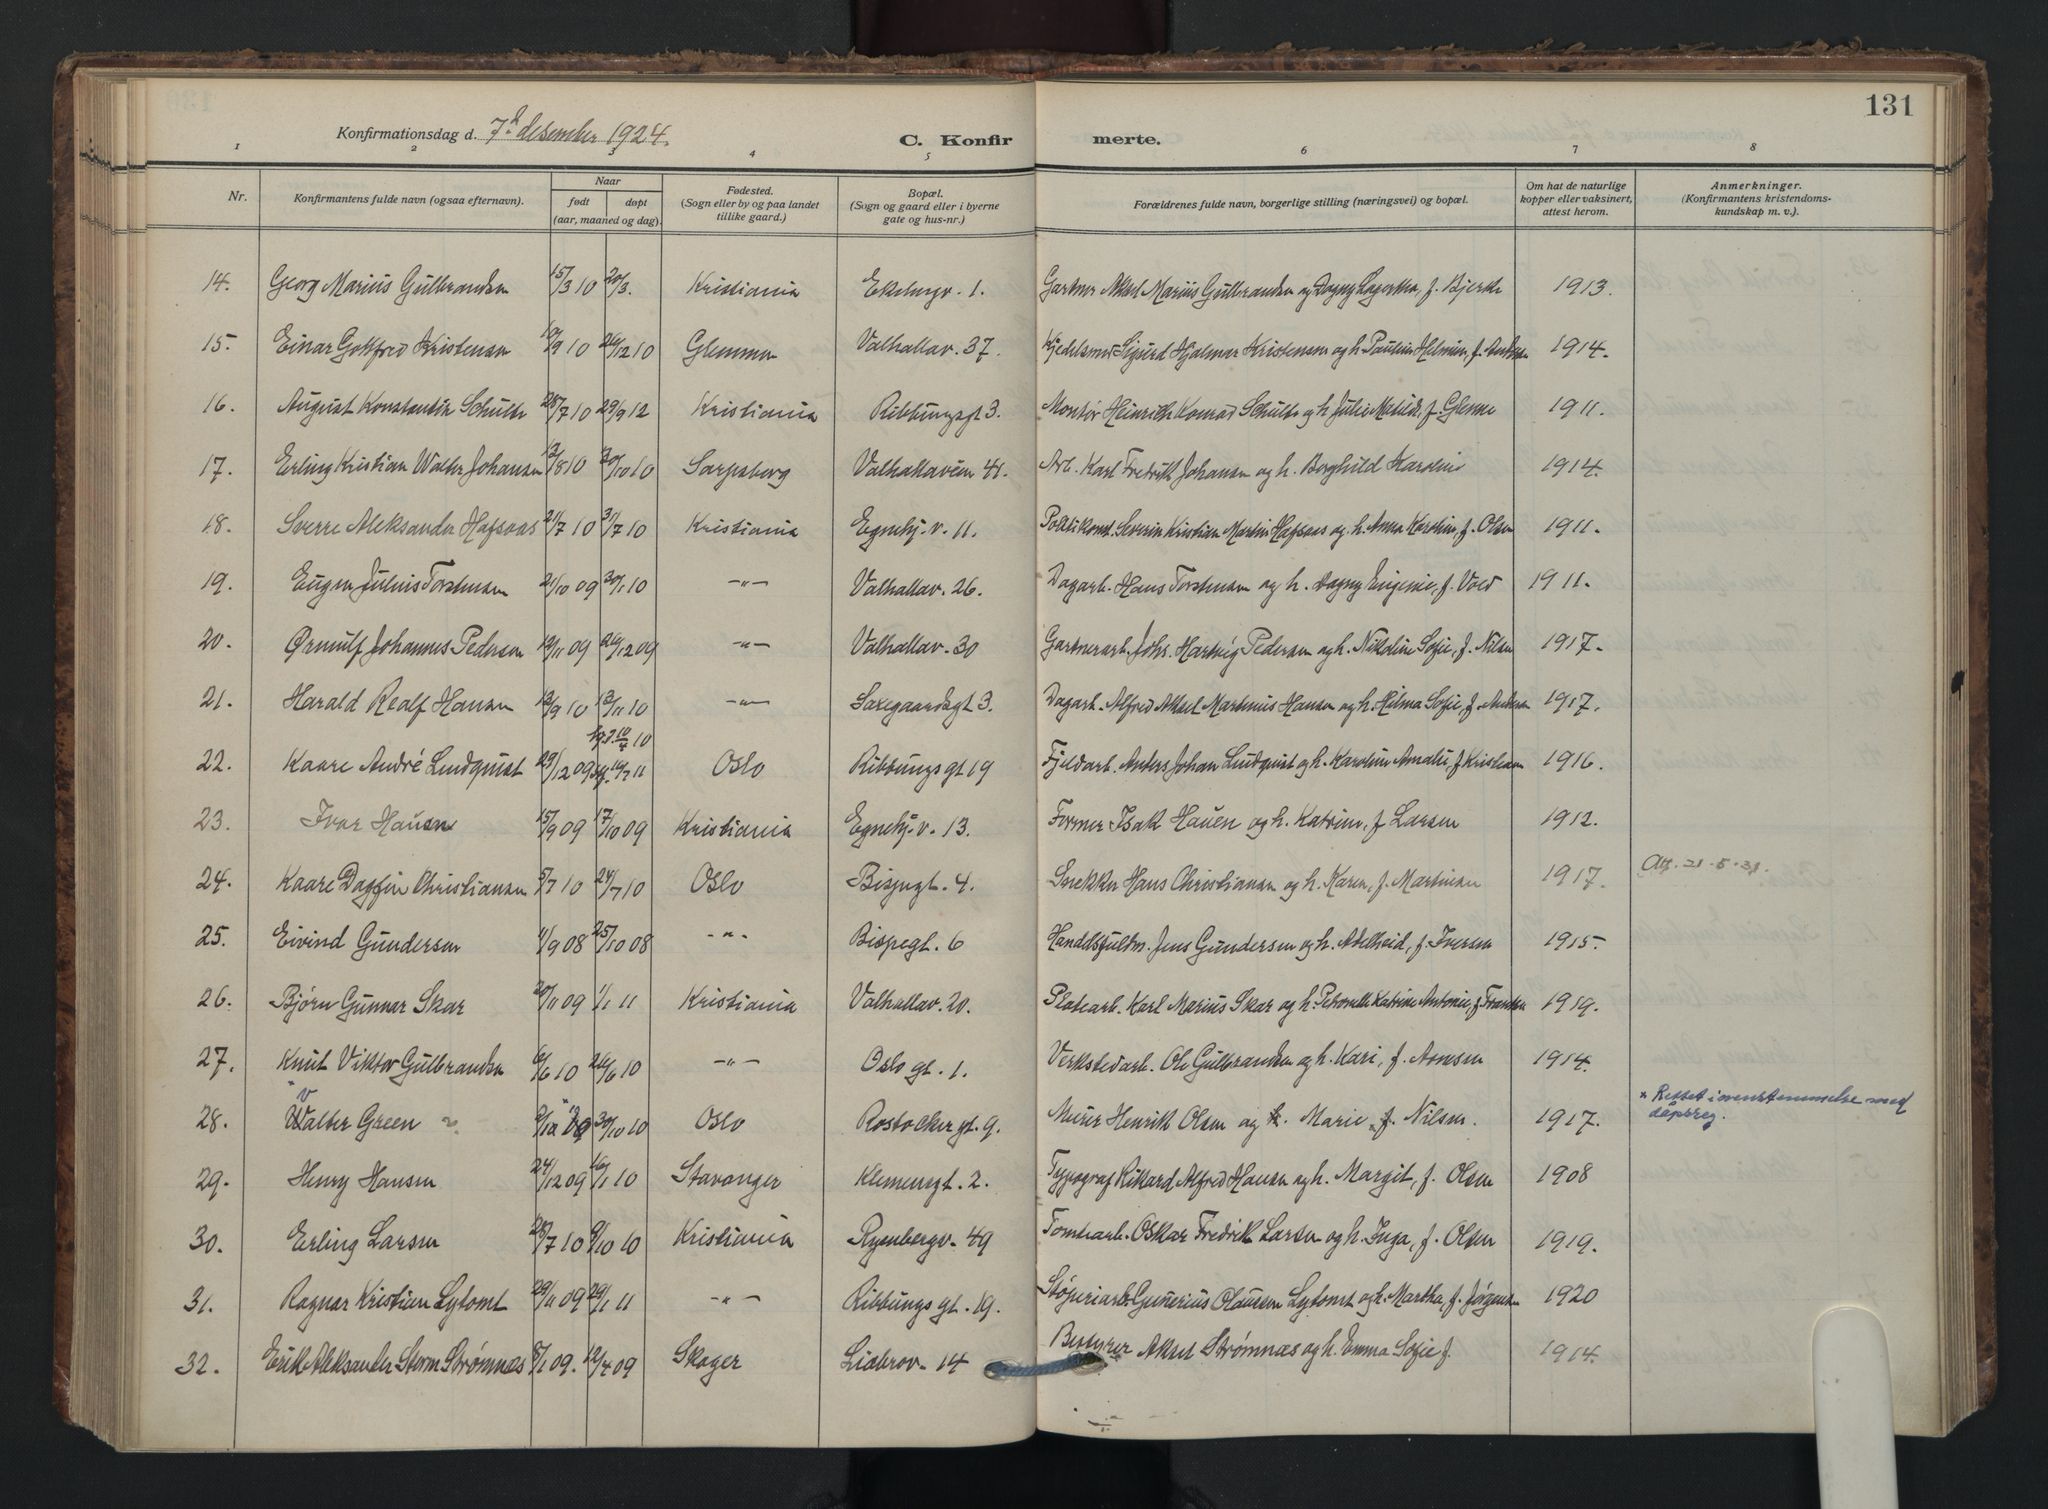 131
Konfirmationsdag d. 7de desember 1924.
C. Konfirmerte.
1 2 3 4 5 6 7 8
Nr. Konfirmantens fulde navn (ogsaa efternavn). Naar født døpt (aar, maaned og dag). Fødested. (Sogn eller by og paa landet tillike gaard.) Bopæl. (Sogn og gaard eller i byerne gate og hus-nr.) Forældrenes fulde navn, borgerlige stilling (næringsvei) og bopæl. Om hat de naturlige kopper eller vaksinert, attest herom. Anmerkninger. (Konfirmantens kristendoms-kundskap m. v.).
14. Georg Marius Gulbrandsen 15/3 10 20/3. Kristiania Ekebergv. 1. Gartner Aksel Marius Gulbrandsen og Dagny Lagertha, f. Bjerke 1913.
15. Einar Gottfred Kristensen 10/9 10 26/12 10 Glemmen Valhallav. 37. Kjedelsmed Sigurd Hjalmar Kristensen og h. Pauline Helmine, f. Andersen 1914.
16. August Konstantin Schulte 28/7 10 29/9 12 Kristiania Ribbungsgt 3. Montør Heinrich Konrad Schulte og h. Julie Matilde, f. Glenne 1911.
17. Erling Kristian Walter Johansen 13/8 10 30/10 10 Sarpsborg Valhallaveien 41. Arb. Karl Fredrik Johansen og h. Borghild Karoline 1914.
18. Sverre Aleksander Hafsaas 21/7 10 31/7 10 Kristiania Egnehj. v. 11. Politikonst. Severin Kristian Martin Hafsaas og h. Anna Karoline, f. Olsen 1911.
19. Eugen Julius Torstensen 21/10 09 30/1 10 -„- Valhallav. 26. Dagarb. Hans Torstensen og h. Dagny Eugenie, f. Vold 1911.
20. Ørnulf Johannes Pedersen 12/11 09 26/12 09 -„- Valhallav. 30 Gartnerarb. Johs. Hartvig Pedersen og h. Nikoline Sofie, f. Nilsen 1917.
21. Harald Realf Hansen 13/9 10 13/11 10 -„- Saxegaardsgt 3. Dagarb. Alfred Aksel Martinius Hansen og h. Hilma Sofie, f. Andersen 1917.
22. Kaare André Lindquist 29/12 09 10/4 10 16/7 11 Oslo Ribbungsgt 19 Fjeldarb. Anders Johan Lindquist og h. Karoline Amalie, f. Kristiansen 1916.
23. Ivar Hauen 15/9 09 17/10 09 Kristiania Egnehj. v. 13. Former Isak Hauen og h. Katrine, f. Larsen 1912.
24. Kaare Dagfin Christiansen 5/7 10 24/7 10 Oslo Bispegt. 4. Snekker Hans Christiansen og h. Karen, f. Martinsen 1917. Att. 21-5-31.
25. Eivind Gundersen 11/9 08 25/10 08 -„- Bispegt. 6 Jens Gundersen og h. Adelheid, f. Iversen 1915.
26. Bjørn Gunnar Skar 20/11 09 1/1 11 Kristiania Valhallav. 20. Platearb. Karl Marius Skar og h. Petronelle Katrine Antonie, f. Fransen 1919.
27. Knut Viktor Gulbrandsen 6/6 10 26/6 10 -„- Oslo gt. 1. Verkstedarb. Ole Gulbrandsen og h. Kari, f. Arnesen 1914.
28. Walter Green 2/12 09 30/10 10 Oslo Rostockergt. 9. Murer Henrik Olsen og h. Marie, f. Nilsen. 1917. × Rettet i overstemmelse med døpsreg.
29. Henry Hansen 24/12 09 16/1 10 Stavanger Klemensgt. 2. Typograf Rikard Alfred Hansen og h. Margit, f. Olsen 1908
30. Erling Larsen 28/7 10 9/10 10 Kristiania Ryenbergv. 49 Tomtearb. Oskar Fredrik Larsen og h. Inga, f. Olsen 1919.
31. Ragnar Kristian Lytomt 29/11 09 29/1 11 -„- Ribbungsgt. 19. Støperiarb. Gunerius Olaussen Lytomt og h. Martha, f. Jørgensen 1920
32. Erik Aleksander Storm Strømnæs 8/1 09. 12/4 09 Skoger Liabrov. 14 Bestyrer Aksel Strømnæs og h. Emma Sofie f. 1914.